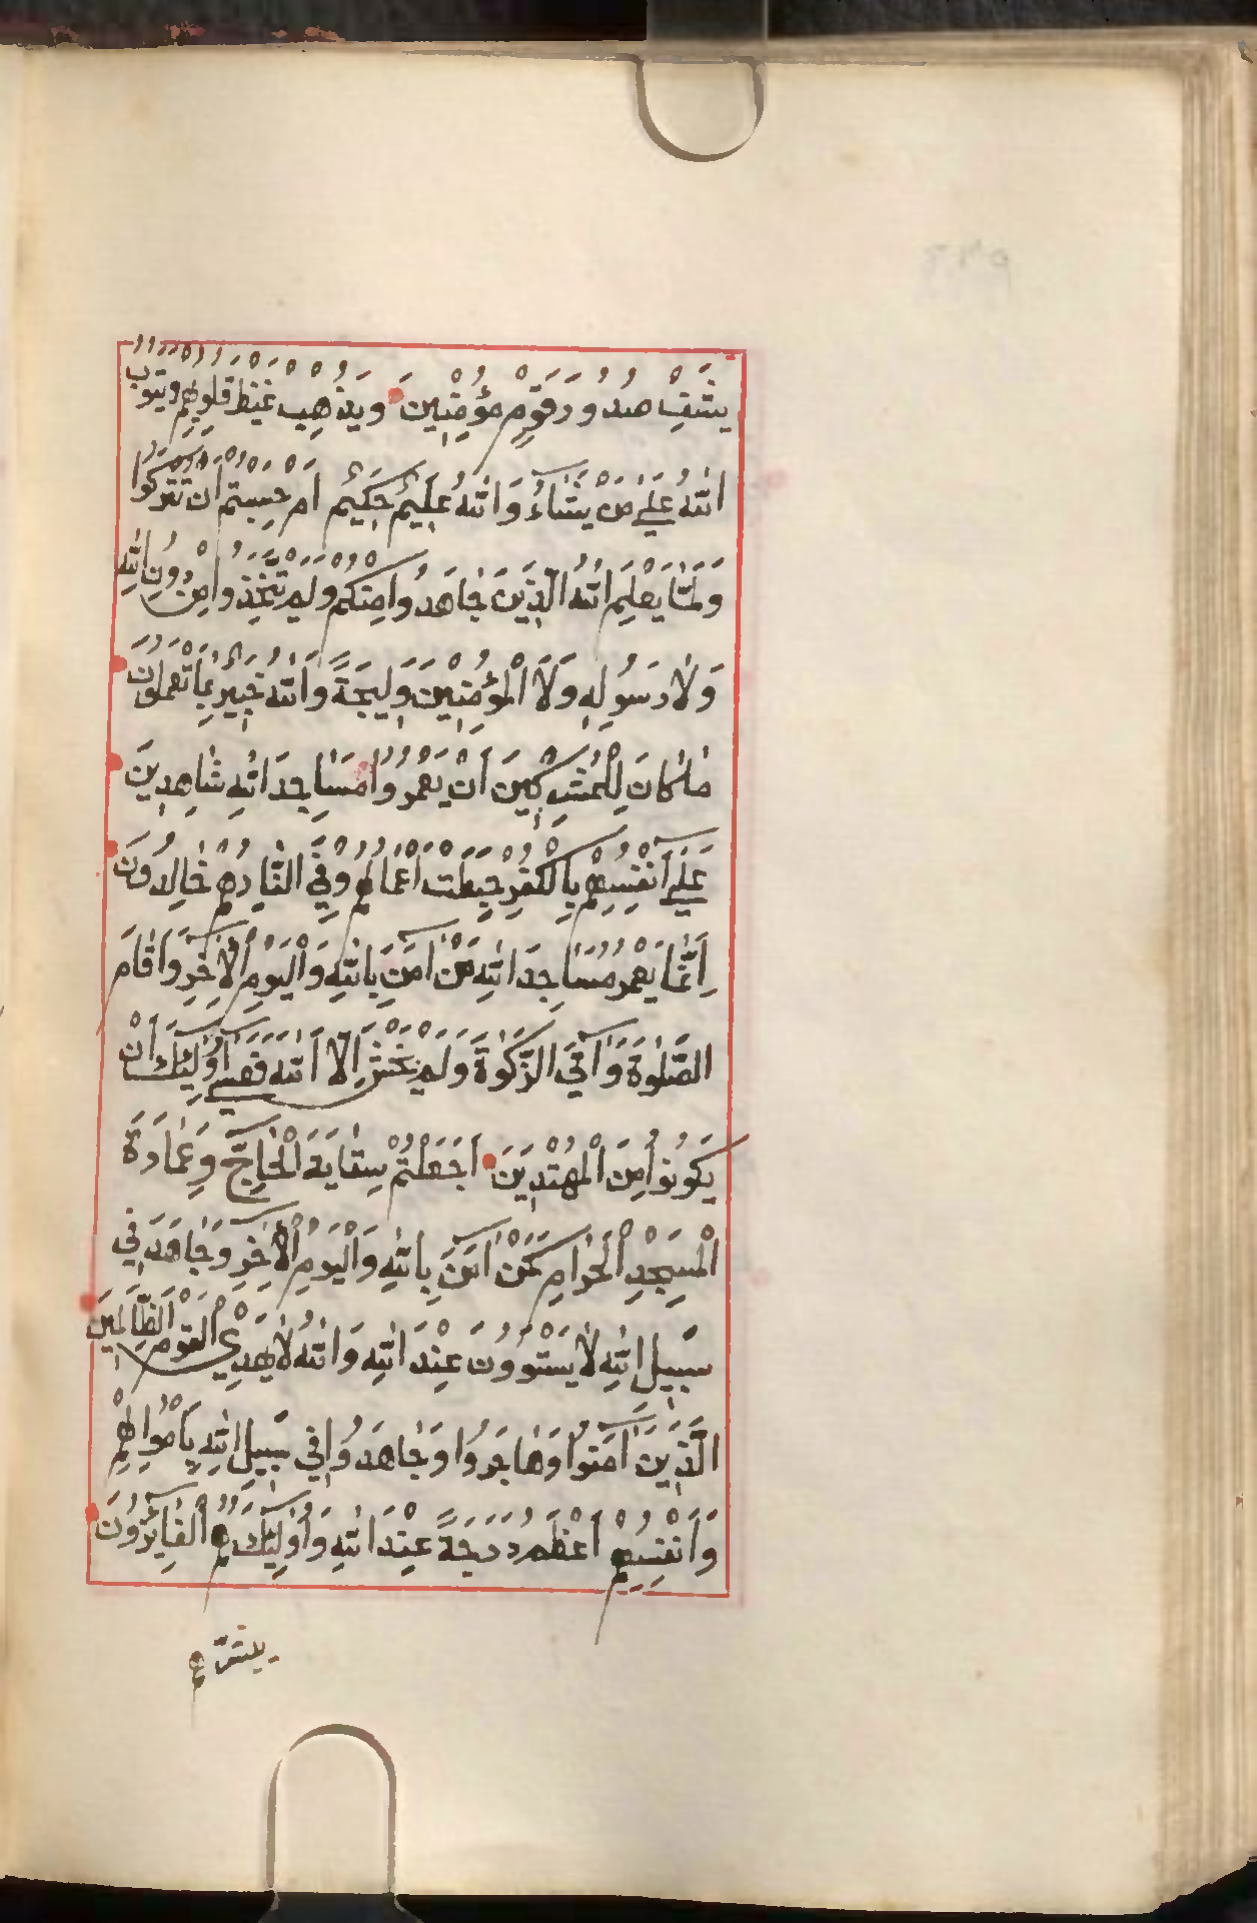 يَشْفِ صُدُورَ قَوْمٍ مُؤْمِنِينَ وَيُذْهِبْ غَيْظَ قُلُوبِهِمْ وَيَتُوبُ
اللّٰهُ عَلَىٰ مَنْ يَشَآءُ وَاللّٰهُ عَلِيمٌ حَكِيمٌ اَمْ حَسِبْتُمْ اَنْ تُتْرَكُوا
وَلَمَّا يَعْلَمِ اللّٰهُ الَّذِينَ جَاهَدُوا مِنْكُمْ وَلَمْ يَتَّخِذُوا مِنْ دُونِ اللّٰهِ
وَلَا رَسُولِهِ وَلَا الْمُؤْمِنِينَ وَلِيجَةً وَاللّٰهُ خَبِيرٌ بِمَا تَعْمَلُونَ
مَا كَانَ لِلْمُشْرِكِينَ اَنْ يَعْمُرُوا مَسَاجِدَ اللّٰهِ شَاهِدِينَ
عَلَىٰٓ اَنْفُسِهِمْ بِالْكُفْرِ حَبِطَتْ اَعْمَالُهُمْ وَفِي النَّارِ هُمْ خَالِدُونَ
اِنَّمَا يَعْمُرُ مَسَاجِدَ اللّٰهِ مَنْ آمَنَ بِاللّٰهِ وَالْيَوْمِ الْآخِرِ وَاَقَامَ
الصَّلٰوةَ وَآتَى الزَّكٰوةَ وَلَمْ يَخْشَ اِلَّا اللّٰهَ فَعَسَىٰٓ اُولٰٓئِكَ اَنْ
يَكُونُوا مِنَ الْمُهْتَدِينَ اَجَعَلْتُمْ سِقَايَةَ الْحَآجِّ وَعِمَارَةَ
الْمَسْجِدِ الْحَرَامِ كَمَنْ آمَنَ بِاللّٰهِ وَالْيَوْمِ الْآخِرِ وَجَاهَدَ فِي
سَبِيلِ اللّٰهِ لَا يَسْتَوُونَ عِنْدَ اللّٰهِ وَاللّٰهُ لَا يَهْدِي الْقَوْمَ الظَّالِمِينَ
الَّذِينَ آمَنُوا وَهَاجَرُوا وَجَاهَدُوا فِي سَبِيلِ اللّٰهِ بِاَمْوَالِهِمْ
وَاَنْفُسِهِمْ اَعْظَمُ دَرَجَةً عِنْدَ اللّٰهِ وَاُولٰٓئِكَ هُمُ الْفَآئِزُونَ
يبشّرهم